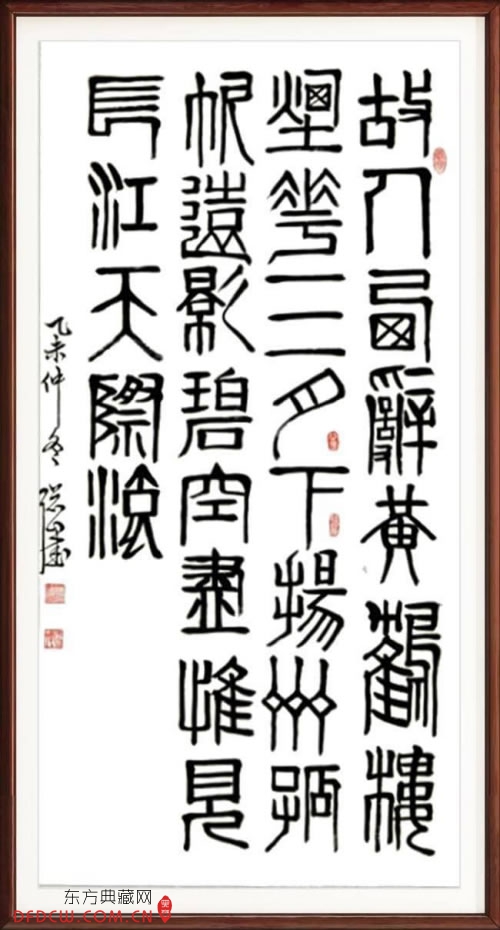 故人西辭黃鶴樓
煙華三月下揚州孤
帆遠影碧空盡惟見
長江天際流
乙未仲冬
东方典藏网
DFDCW.COM.CN